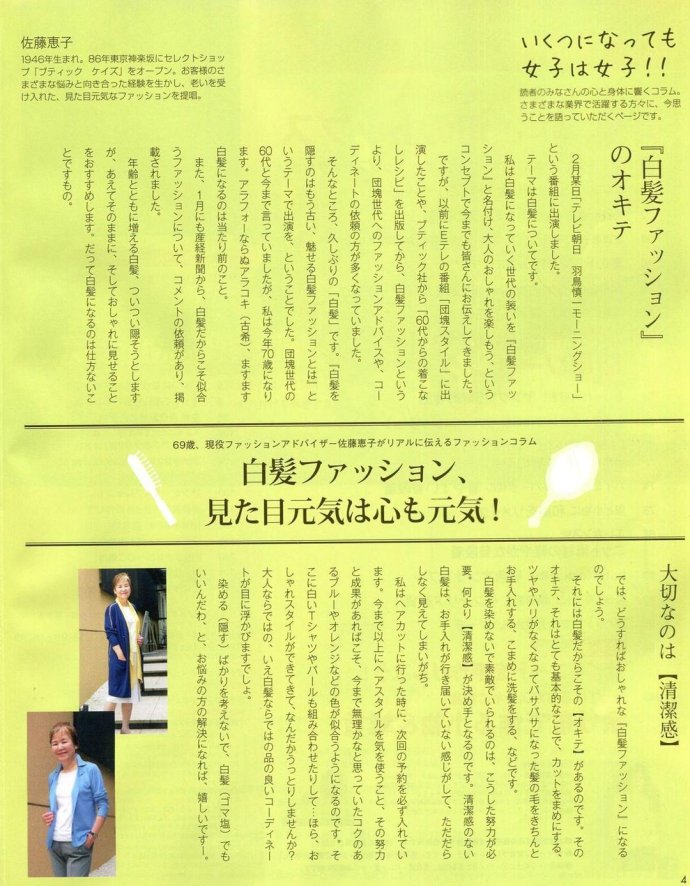 いくつになっても
女子は女子!!
読者のみなさんの心と身体に響くコラム。
さまざまな業界で活躍する方々に、今思
うことを語っていただくページです。
佐藤恵子
1946年生まれ。86年東京神楽坂にセレクトショッ
プ「ブティック ケイズ」をオープン。お客様のさ
まざまな悩みと向き合った経験を生かし、老いを受
け入れた、見た目元気なファッションを提唱。
『白髪ファッション』
のオキテ
2月某日「テレビ朝日 羽鳥慎一モーニングショー」
という番組に出演しました。
テーマは白髪についてです。
私は白髪になっていく世代の装いを『白髪ファッ
ション』と名付け、大人のおしゃれを楽しもう、という
コンセプトで今までも皆さんにお伝えしてきました。
ですが、以前にEテレの番組「団塊スタイル」に出
演したことや、ブティック社から「60代からの着こな
しレシピ」を出版してから、白髪ファッションという
より、団塊世代へのファッションアドバイスや、コー
ディネートの依頼の方が多くなっていました。
そんなところ、久しぶりの「白髪」です。『白髪を
隠すのはもう古い、魅せる白髪ファッションとは』と
いうテーマで出演を、ということでした。団塊世代の
60代と今まで言っていましたが、私は今年70歳になり
ます。アラフォーならぬアラコキ（古希）、ますます
白髪になるのは当たり前のこと。
また、1月にも産経新聞から、白髪だからこそ似合
うファッションについて、コメントの依頼があり、掲
載されました。
年齢とともに増える白髪、ついつい隠そうとします
が、あえてそのままに、そしておしゃれに見せること
をおすすめします。だって白髪になるのは仕方ないこ
とですもの。
69歳、現役ファッションアドバイザー佐藤恵子がリアルに伝えるファッションコラム
白髪ファッション、
見た目元気は心も元気！
大切なのは【清潔感】
では、どうすればおしゃれな『白髪ファッション』になる
のでしょう。
それには白髪だからこその【オキテ】があるのです。その
オキテ、それはとても基本的なことで、カットをまめにする、
ツヤやハリがなくなってパサパサになった髪の毛をきちんと
お手入れする、こまめに洗髪をする、などです。
白髪を染めないで素敵でいられるのは、こうした努力が必
要。何より【清潔感】が決め手となるのです。清潔感のない
白髪は、お手入れが行き届いていない感じがして、ただだら
しなく見えてしまいがち。
私はヘアカットに行った時に、次回の予約を必ず入れてい
ます。今まで以上にヘアスタイルを気を使うこと、その努力
と成果があればこそ、今まで無理かなと思っていたコクのあ
るブルーやオレンジなどの色が似合うようになるのです。そ
こに白いTシャツやパールも組み合わせたりして…ほら、お
しゃれスタイルができてきて、なんだかうっとりしませんか？
大人ならではの、いえ白髪ならではの品の良いコーディネー
トが目に浮かびますでしょ。
染める（隠す）ばかりを考えないで、白髪（ゴマ塩）でも
いいんだわ、と、お悩みの方の解決になれば、嬉しいですー。
4